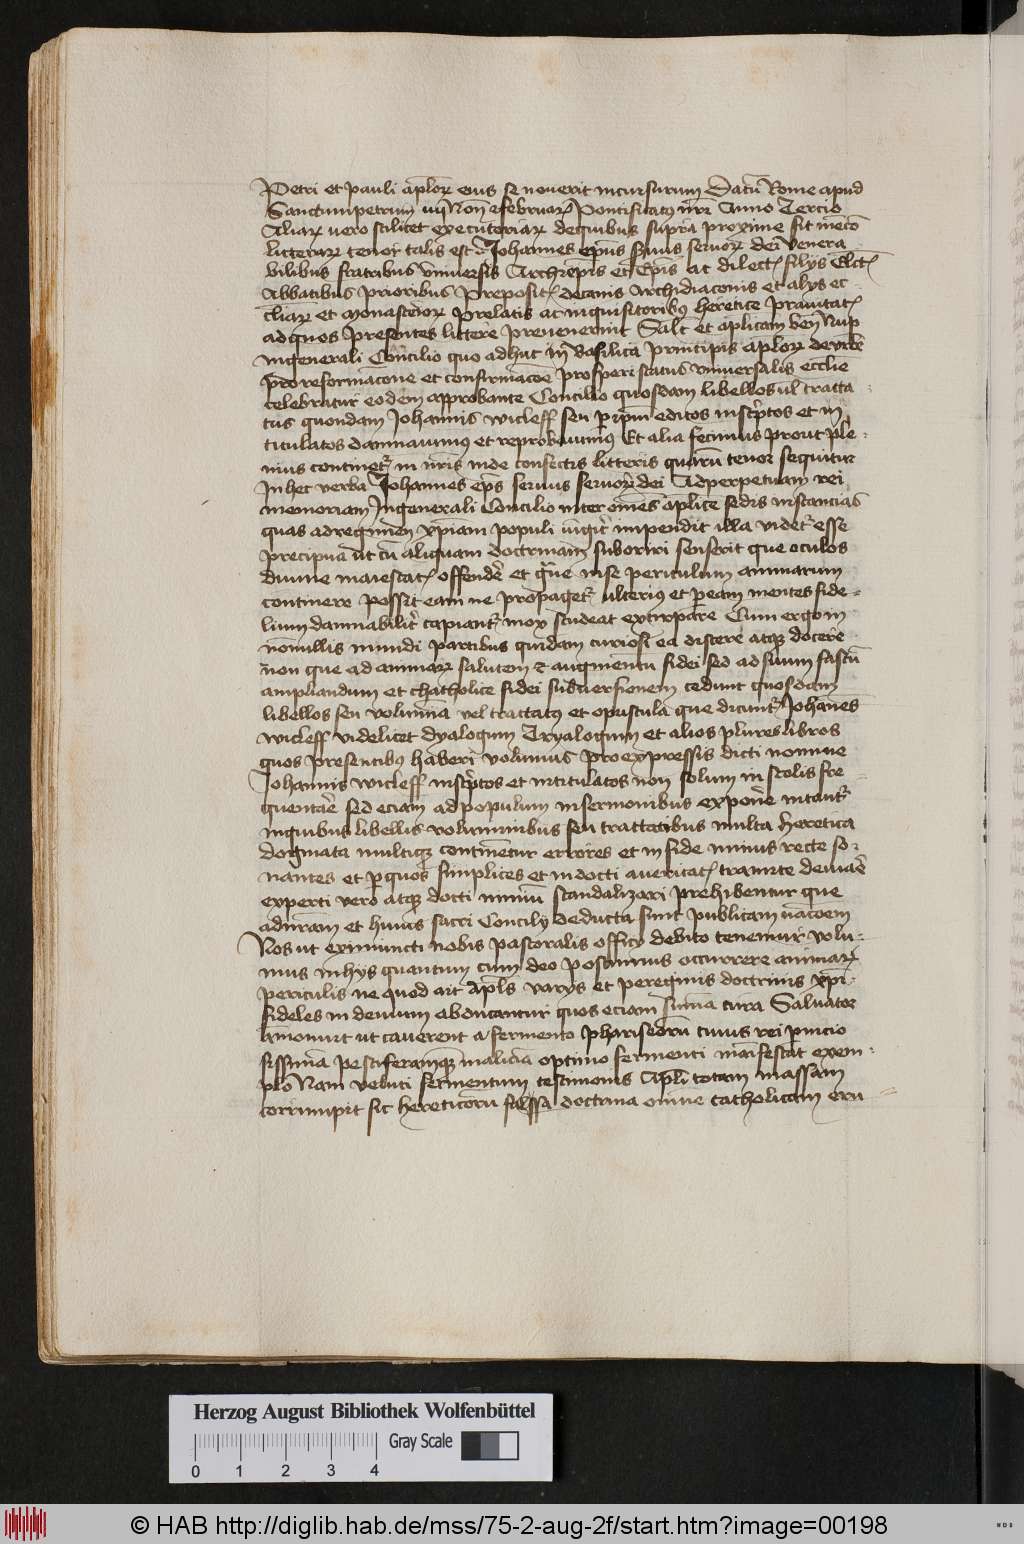 Petri et pauli aplor̄ eius se nouerit incursurum Datū Rome apud
Sanctumpetrum iiij Non̄ ffebruar̄ Pontificatus nr̄i Anno Tercio
Aliar̄ vero scilicet executoriar̄ dequibus supra proxime fit mēcō
litterar̄ tenor talis est Johannes ep̄us seruus seruor̄ dei Venera
bilibus fratribus vniuersis Archiep̄is et Ep̄is ac dilect̄ filijs Elct̄
Abbatibus prioribus Preposit̄ decanis Archidiaconis et alijs ec
cl̄iar̄ et monasterior̄ prelatis ac inquisitoribus heretice prauitat̄
adquos presentes littere peruenerint Salt̄ et aplicam ben̄ Nup
ingenerali Concilio quo adhuc in Basilica principis aplor̄ de vrbe
pro reformacōne et confirmacōe prosperi status vniuersalis eccl̄ie
celebratur eodem approbante Concilio quosdam libellos ul tracta
tus quondam Johannis wicleff seu p ip̄m editos inscriptos et in
titulatos dampnauimus et reprobauimus Et alia fecimus prout ple
nius continet̄ in nr̄is inde confectis litteris quarū tenor sequitur
In hec verba Johannes ep̄s seruus seruor̄ dei Adperpetuam rei
memoriam Ingenerali Concilio inter om̄es aplice sedis instancias
quas adregimen xp̄iani populi iugit̄ impendit illa videt̄ esse
precipua ut cū aliquam doctrinam suboriri senserit que oculos
diuine maiestat̄ offendē et graue inse periculum animarum
continere possit eam ne propaget̄ ulterius et p eam mentes fide
lium dampnabilit̄ capiant̄ mox studeat extirpare Cum ergo in
nōnullis mundi partibus quidam curiosi ea discere atq̄ docere
non que ad animar̄ salutem et augmentū fidei sed ad suum fastū
ampliandum et chatholice fidei subuersionem cedunt quosdam
libellos seu volumina vel tractatus et opuscula que dicunt̄ Johannes
wicleff videlicet dyalogum Tryalogum et alios plures libros
quos presentibus haberi volumus pro expressis dicti nomine
Johannis wicleff inscriptos et intitulatos non solum in scolis fre
quentāē sed eciam ad populum in sermonibus exponē nitant̄
inquibus libellis voluminibus seu tractatibus multa heretica
dogmata multiq̄ continentur errores et in fide minus recte so
nantes et p quos simplices et indocti a veritat̄ tramite deuiāē
experti vero atq̄ docti nimiū scandalizari prehibentur que
ad nr̄am et huius sacri Concilij deducta sunt publicam nācōem
Nos ut eximiuncti nobis pastoralis officij debito tenemur volu
mus inhijs quantum cum deo possumus occurrere animar̄
periculis ne quod ait Apl̄s varijs et peregrinis doctrinis xp̄i
fideles in deuium abducantur quos eciam summa cura Saluator
āmonuit ut cauerent a fermento phariseorū cuius rei p̄nicio
sissimā pestiferamq̄ maliciā optimo fermenti manifestat exem
plo Nam veluti fermentum testimonis Apl̄i totam massam
corrumpit sic hereticorū falssa doctrina omne catholicam eru
Herzog August Bibliothek Wolfenbüttel
Gray Scale
0 1 2 3 4
© HAB http://diglib.hab.de/mss/75-2-aug-2f/start.htm?image=00198